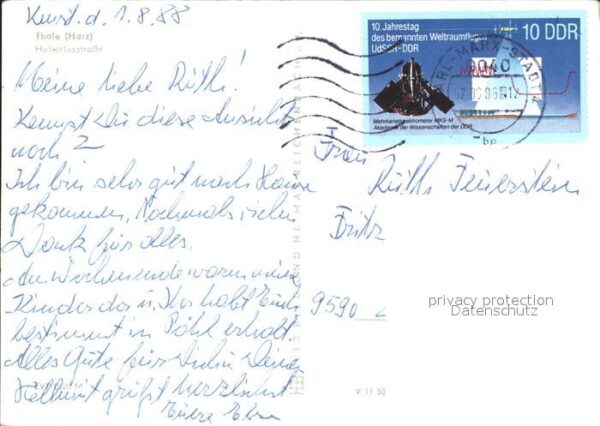 d. 1.8.88
Thale (Harz)
Hubertusstraße
Meine liebe Ruth!
Kennst Du diese Ansicht
noch?
Ich bin sehr gut nach Hause
gekommen. Nochmals vielen
Dank für alles.
Am Wochenende waren meine
Kinder da u. Ihr habt Euch
bestimmt in Pöhl erholt.
Alles Gute für Dich u. Deinen
Hellmut grüßt herzlichst
Eure
10. Jahrestag
des bemannten Weltraumfluges
UdSSR-DDR
10 DDR
Mehrkanalspektrometer MKS-M
Akademie der Wissenschaften der DDR
KARL-MARX-STADT 4
9040
Frau
Ruth Feuerstein
9590
privacy protection
Datenschutz
V 11 50